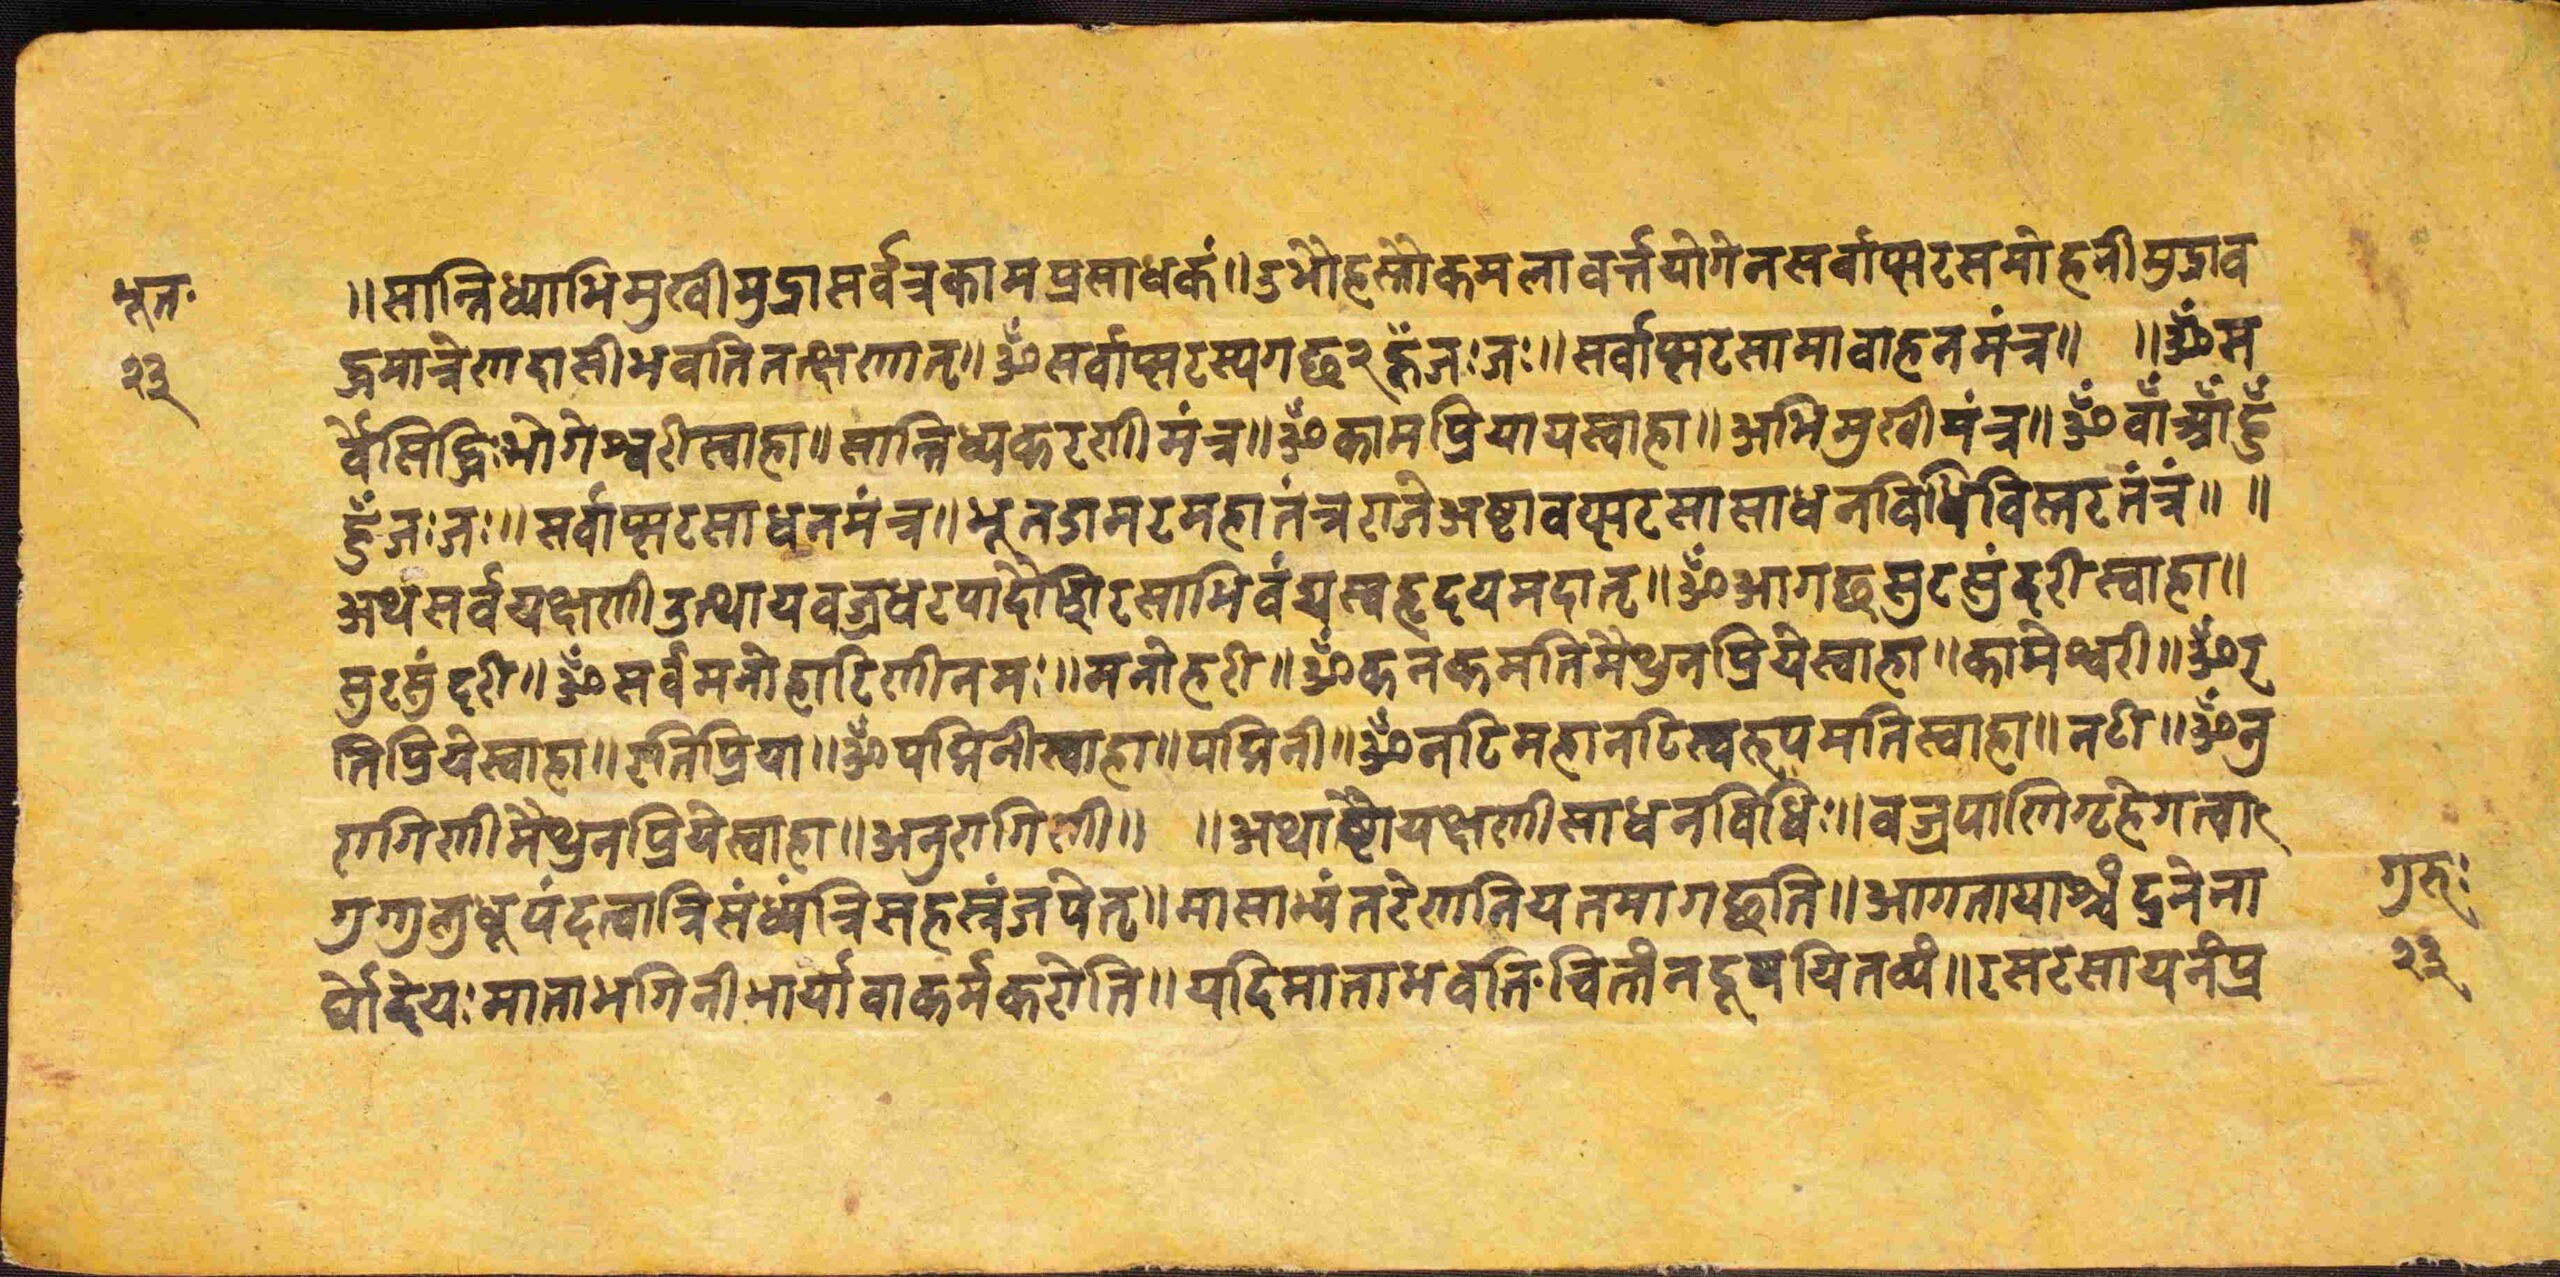 भूत॰
२३
॥सान्निध्याभिमुखीमुद्रासर्वत्रकामप्रसाधकं॥उभौहस्तौकमलावर्त्तयोगेनसर्वाप्सरसमोहनीमुद्राव
द्धमात्रेणदासीभवतितत्क्षणात्॥ॐसर्वाप्सरस्यगछ२हूँजःजः॥सर्वाप्सरसामावाहनमंत्र॥ ॥ॐस
र्वैसिद्धिःभोगेश्वरीस्वाहा॥सान्निध्यकरणीमंत्र॥ॐकामप्रियायस्वाहा॥अभिमुखीमंत्र॥ॐवाँ
जःजः॥सर्वाप्सरसाधनमंत्र॥भूतडामरमहातंत्रराजेअष्टावप्सरसासाधनविधिविस्तरतंत्रं॥ ॥
अथसर्वयक्षणीउत्थायवज्रधरपादौशिरसाभिवंद्यस्वहृदयमदात्॥ॐआगछसुरसुंदरीस्वाहा॥
सुरसुंदरी॥ॐसर्वमनोहारिणीनमः॥मनोहरी॥ॐकनकमतिमैथुनप्रियेस्वाहा॥कामेश्वरी॥ॐर
तिप्रियेस्वाहा॥रतिप्रिया॥ॐपद्मिनीस्वाहा॥पद्मिनी॥ॐनटिमहानटिस्वरूपमतिस्वाहा॥नटी॥ॐनु
रागिणीमैथुनप्रियेस्वाहा॥अनुरागिणी॥ ॥अथाष्टौयक्षणीसाधनविधिः॥वज्रपाणिगृहेगत्वा
गुग्गुलुधूपंदत्वात्रिसंध्यंत्रिसहस्रंजपेत्॥मासाभ्यंतरेणनियतमागछति॥आगतायाश्चंदनेना
र्घोदेयःमाताभगिनीभार्यावाकर्मकरोति॥यदिमाताभवतिचित्तंनदूषयितव्यं॥रसरसायनंप्र
गुरुः
२३